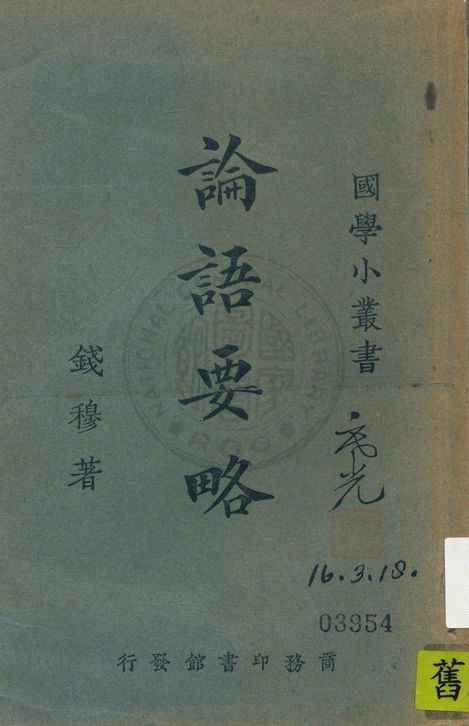 國學小叢書
論語要略
錢穆著
16.3.18.
03954
商務印書館發行
舊
NATIONAL CENTRAL LIBRARY
R.O.C.